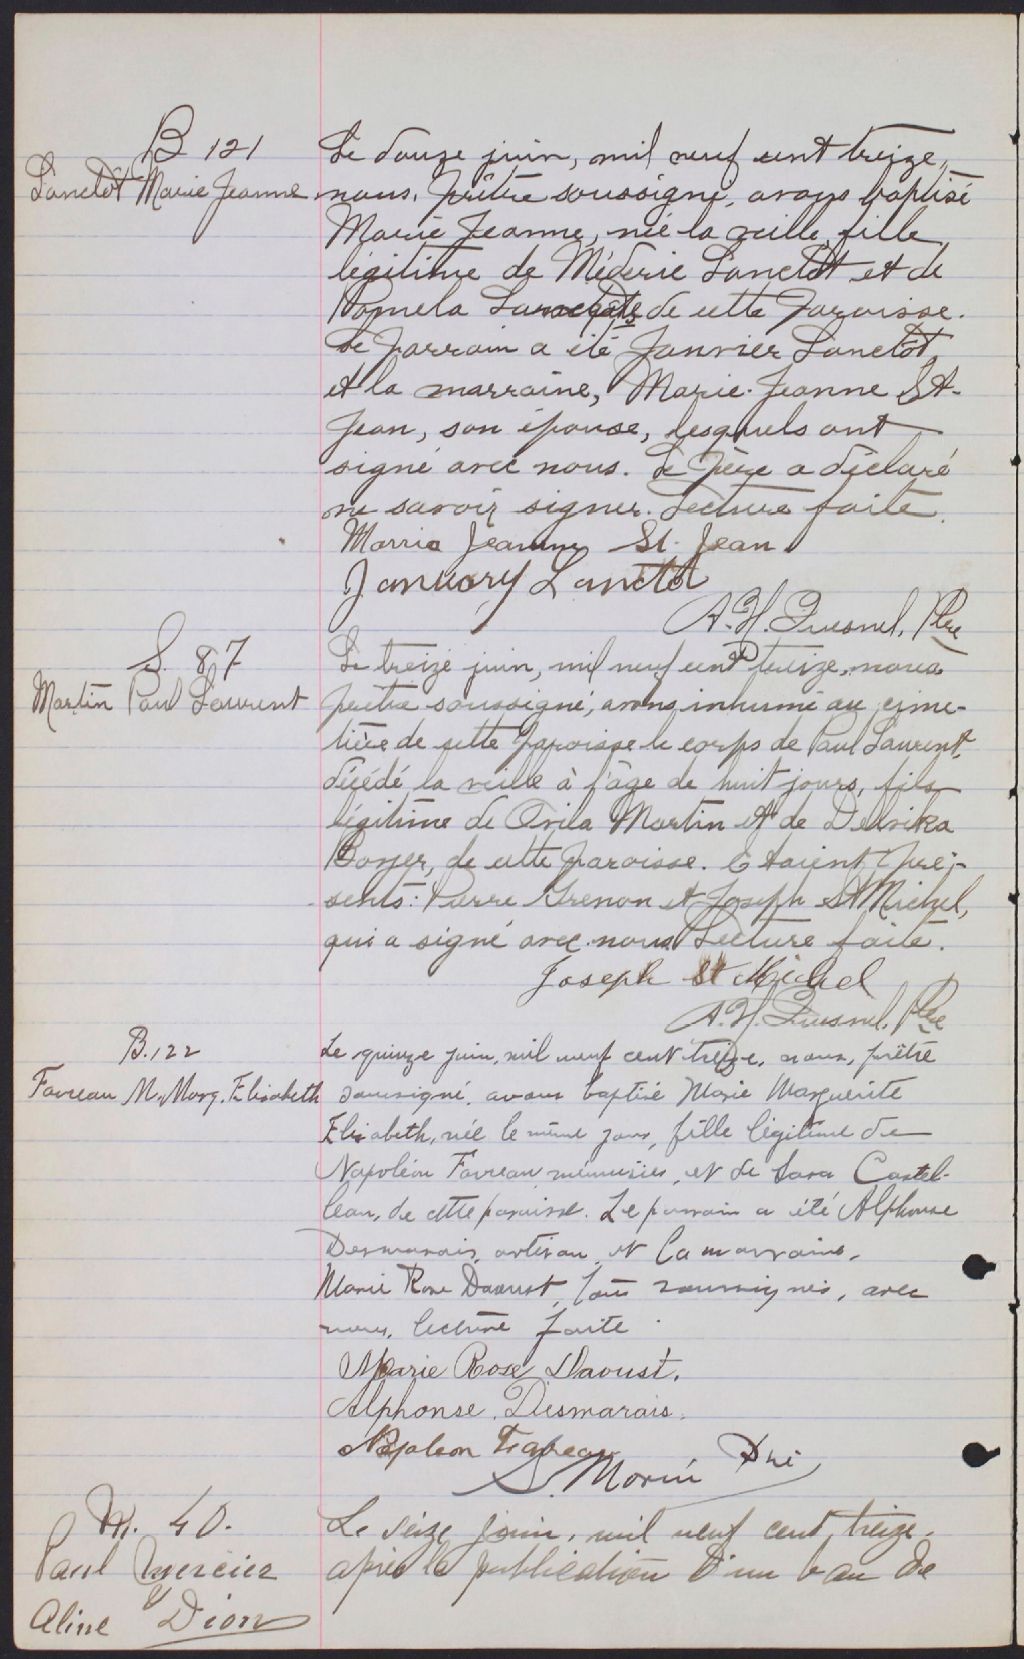 B 121
Lanctôt Marie Jeanne
Le douze juin, mil neuf cent treize,
nous, prêtre soussigné, avons baptisé
Marie Jeanne, née la veille, fille
légitime de Méderic Lanctôt et de
Pomela de cette Paroisse.
Le parrain a été Janvier Lanctôt,
et la marraine, Marie-Jeanne St-
Jean, son épouse, lesquels ont
signé avec nous. Le père a déclaré
ne savoir signer. Lecture faite.
Marrie Jeanne St. Jean
January Lanctôt
A. H. Quesnel, Ptre
S. 87
Martin Paul Laurent
Le treize juin, mil neuf cent treize, nous
prêtre soussigné, avons inhumé au cime-
tière de cette paroisse le corps de Paul Laurent,
décédé la veille à l'âge de huit jours, fils
légitime de Orila Martin et de Delvika
Boyer, de cette paroisse. Etaient pré-
sents: Pierre Grenon et Joseph St Michel,
qui a signé avec nous Lecture faite.
Joseph St Michel
A. H. Quesnel, Ptre
B. 122
Favreau M. Marg. Elisabeth
Le quinze juin, mil neuf cent treize, nous, prêtre
soussigné, avons baptisé Marie Marguerite
Elisabeth, née le même jour, fille légitime de
Napoléon Favreau, menuisier, et de Sara Castel-
leau, de cette paroisse. Le parrain a été Alphonse
Desmarais, artisan, et la marraine,
Marie Rose Daoust, soussignés, avec
nous, lecture faite.
Marie Rose Daoust.
Alphonse Desmarais.
Napoleon Favreau
S. Morin Ptre
M. 40.
Paul Mercier
&
Aline Dion
Le seize juin, mil neuf cent treize,
après la publication d'un ban de